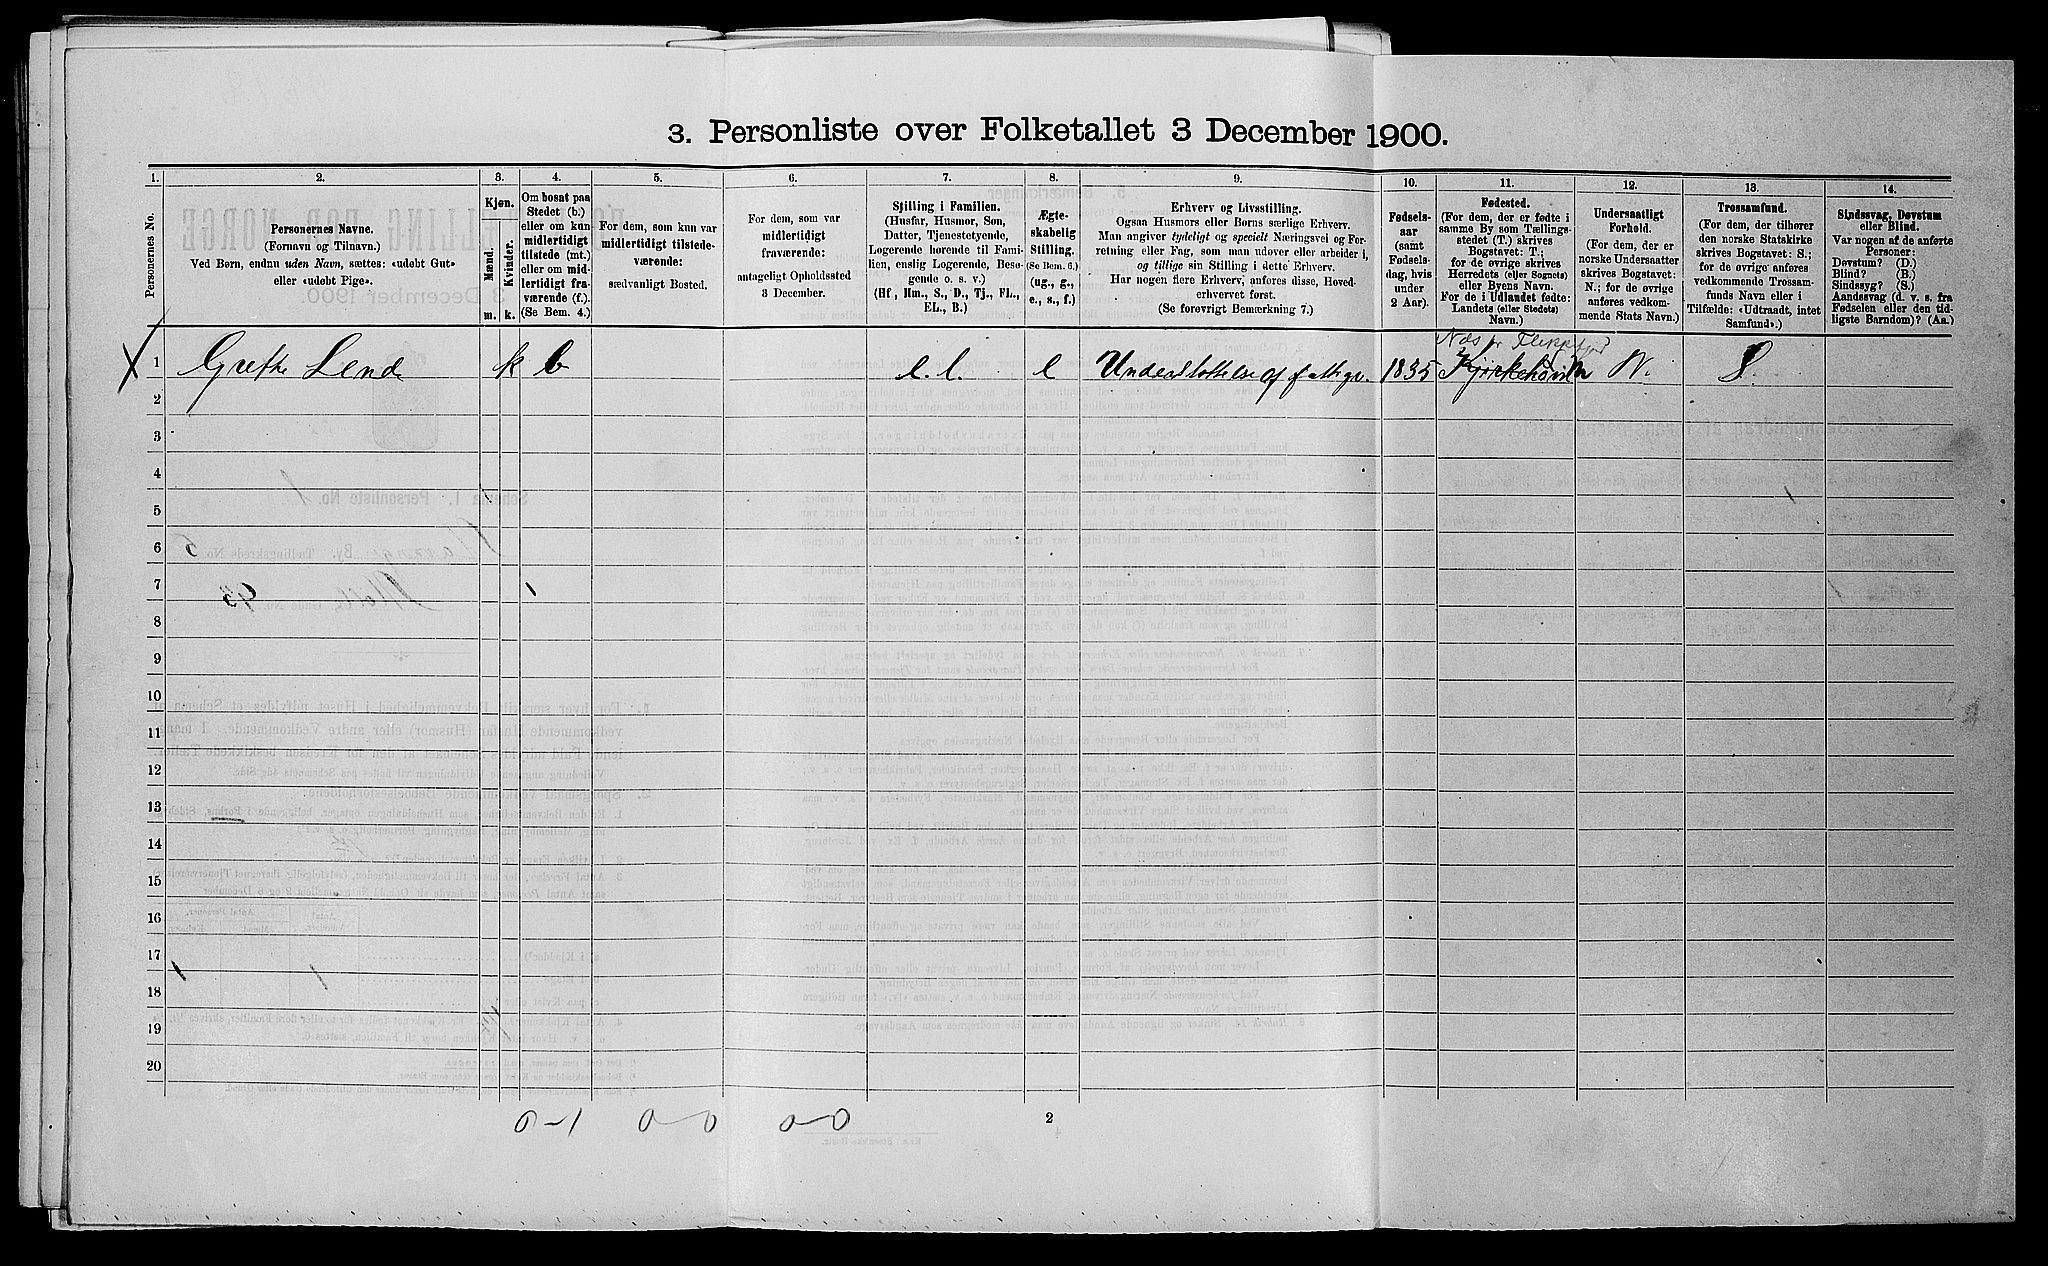 3. Personliste over Folketallet 3 December 1900.
1.
Personernes No.
2.
Personernes Navne.
(Fornavn og Tilnavn.)
Ved Børn, endnu uden Navn, sættes: «udøbt Gut»
eller «udøbt Pige».
3.
Kjøn.
Mænd.
Kvinder.
m. k.
4.
Om bosat paa
Stedet (b.)
eller om kun
midlertidigt
tilstede (mt.)
eller om mid-
lertidigt fra-
værende (f.).
(Se Bem. 4.)
5.
For dem, som kun var
midlertidigt tilstede-
værende:
sædvanligt Bosted.
6.
For dem, som var
midlertidigt
fraværende:
antageligt Opholdssted
3 December.
7.
Stilling i Familien.
(Husfar, Husmor, Søn,
Datter, Tjenestetyende,
Logerende hørende til Fami-
lien, enslig Logerende, Besø-
gende o. s. v.)
(Hf., Hm., S., D., Tj., FL.,
EL., B.)
8.
Ægte-
skabelig
Stilling.
(Se Bem. 6.)
(ug., g.,
e., s., f.)
9.
Erhverv og Livsstilling.
Ogsaa Husmors eller Børns særlige Erhverv.
Man angiver tydeligt og specielt Næringsvei og For-
retning eller Fag, som man udøver eller arbeider i,
og tillige sin Stilling i dette Erhverv.
Har nogen flere Erhverv, anføres disse, Hoved-
erhvervet først.
(Se forøvrigt Bemærkning 7.)
10.
Fødsels-
aar
(samt
Fødsels-
dag, hvis
under
2 Aar).
11.
Fødested.
(For dem, der er fødte i
samme By som Tællings-
stedet (T.) skrives
Bogstavet: T.;
for de øvrige skrives
Herredets (eller Sognets)
eller Byens Navn.
For de i Udlandet fødte:
Landets (eller Stedets)
Navn.)
12.
Undersaatligt
Forhold.
(For dem, der er
norske Undersaatter
skrives Bogstavet:
N.; for de øvrige
anføres vedkom-
mende Stats Navn.)
13.
Trossamfund.
(For dem, der tilhører
den norske Statskirke
skrives Bogstavet: S.;
for de øvrige anføres
vedkommende Trossam-
funds Navn eller i
Tilfælde: «Udtraadt, intet
Samfund».)
14.
Sindssvag, Døvstum
eller Blind.
Var nogen af de anførte
Personer:
Døvstum? (D.)
Blind? (B.)
Sindssyg? (S.)
Aandssvag (d. v. s. fra
Fødselen eller den tid-
ligste Barndom)? (Aa.)
Næs pr Flekkefjord
1 Grethe Lend k b e. l. e Understøttelse af fathgv. 1835 N. S.
2
3
4
5
6
7
8
9
10
11
12
13
14
15
16
17
18
19
20
0-1 0 0 0-0
2